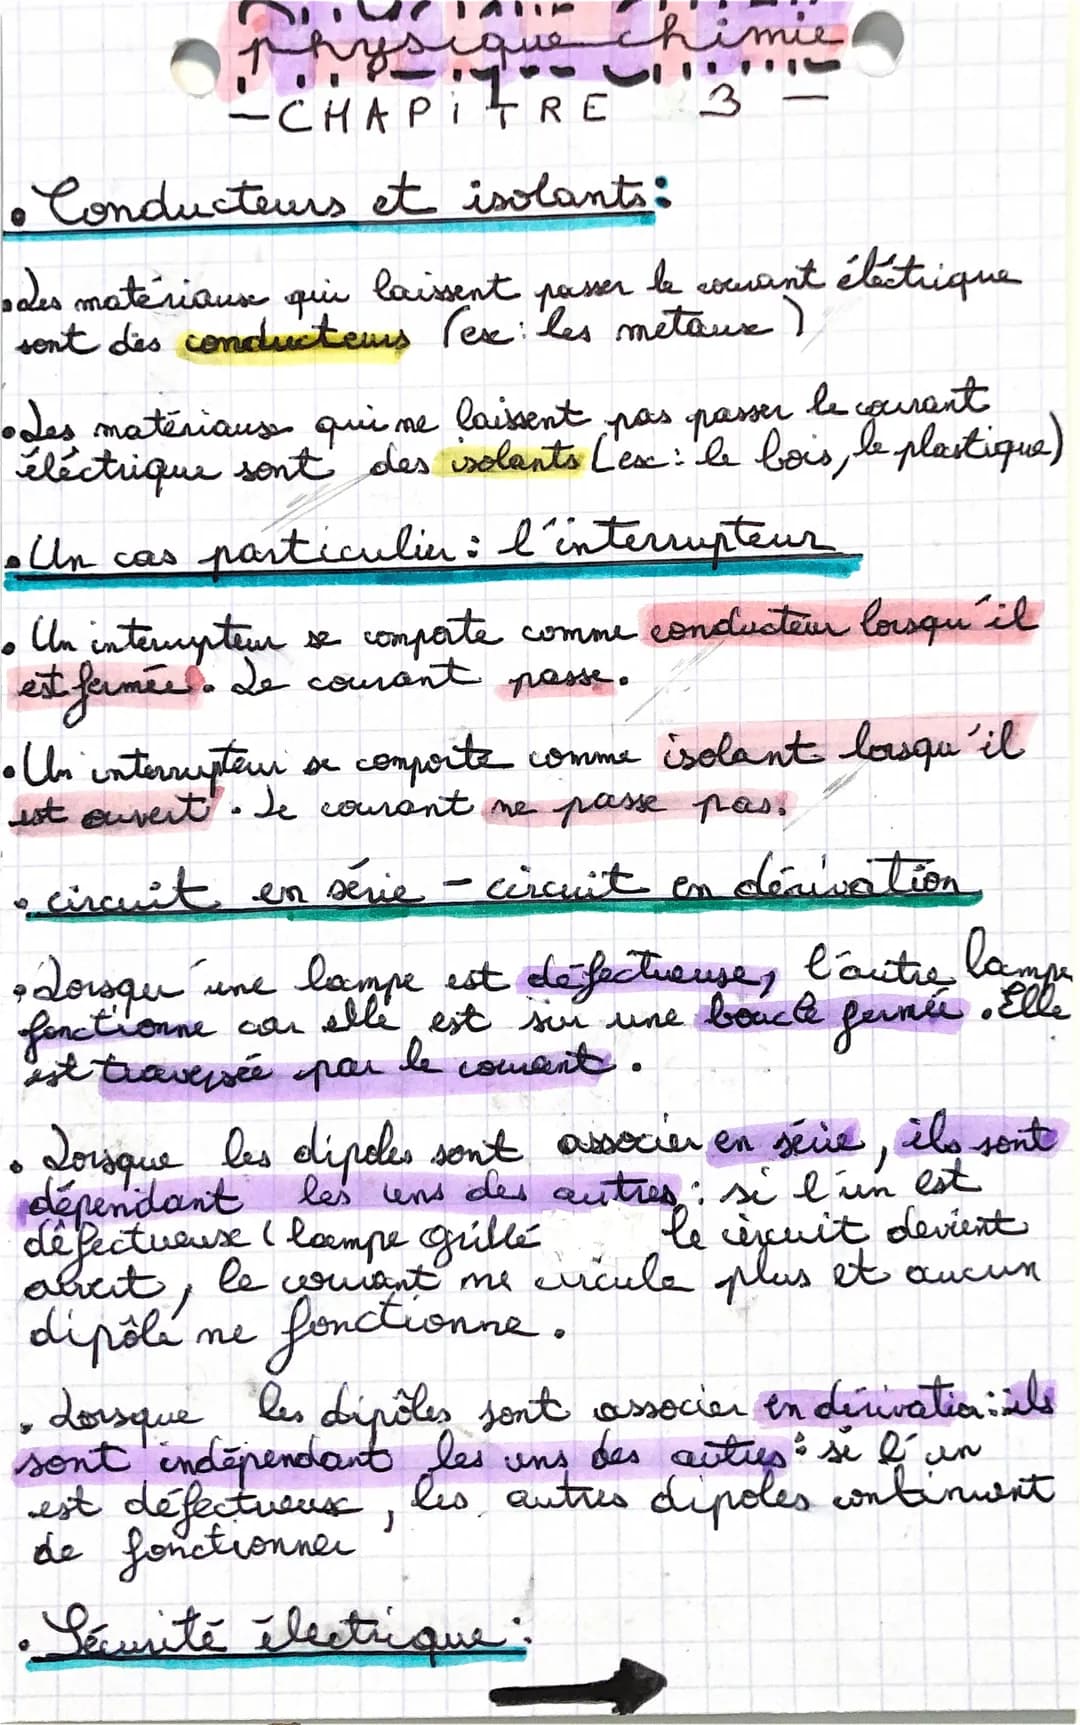 physique chimie
- CHAPiTRE 3 -
• Conducteurs et isolants:
• Les matériaux qui laissent passer le courant éléctrique
sont des conducteurs (ex: les metaux)
• Les matériaux qui ne laissent pas passer le courant
éléctrique sont des isolants (ex: le bois, le plastique)
• Un cas particulier : l'interrupteur
• Un interrupteur se comporte comme conducteur lorsqu'il
est fermée. Le courant passe.
• Un interrupteur se comporte comme isolant lorsqu'il
est ouvert. Le courant ne passe pas.
• circuit en série - circuit en dérivation
• Lorsqu'une lampe est défectueuse, l'autre lampe
fonctionne car elle est sur une boucle fermée. Elle
est traversée par le courant.
• Lorsque les dipoles sont associer en série, ils sont
dépendant les uns des autres : si l'un est
défectueuse (lampe grillé le circuit devient
, le courant ne circule plus et aucun
dipôle ne fonctionne.
• Lorsque les dipôles sont associer en dérivation: ils
sont indépendant les uns des autres : si l'un
est défectueux, les autres dipoles continuent
de fonctionner
• Sécurité électrique :